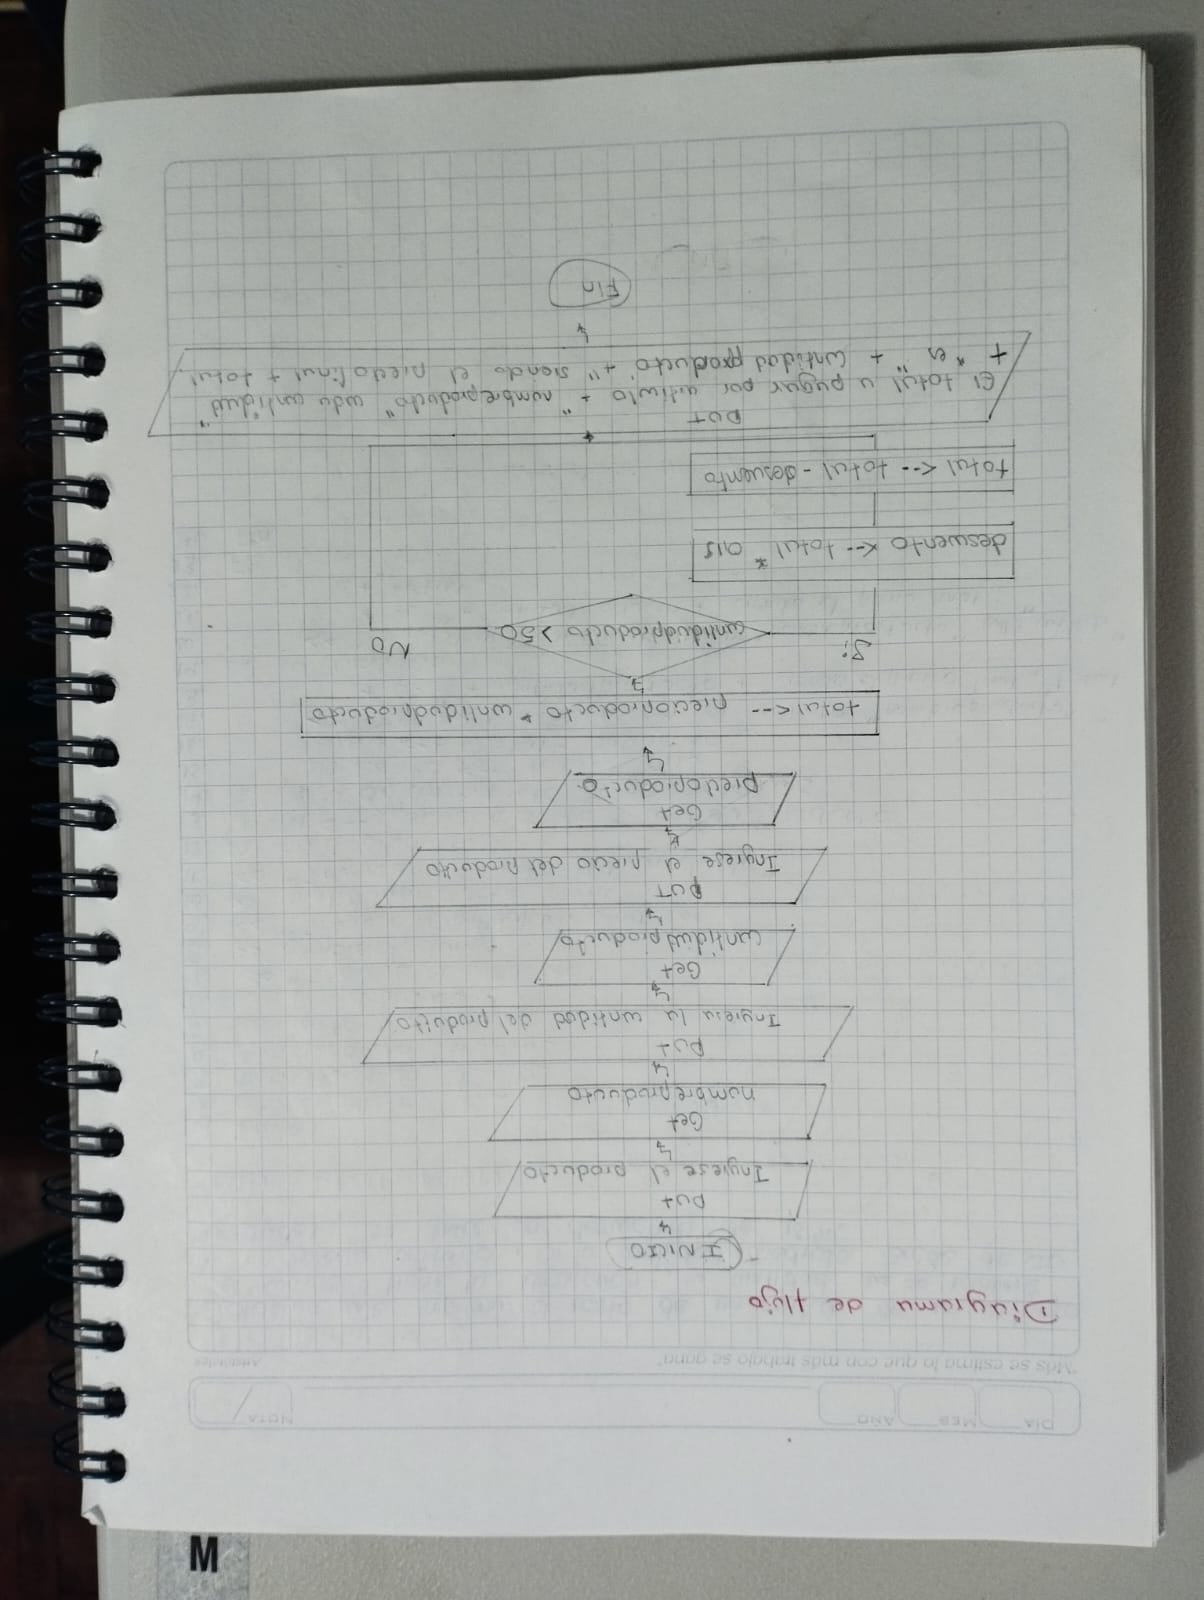 DIA MES AÑO NOTA
"Más se estima lo que con más trabajo se gana" Aristóteles
Diagrama de flujo
INICIO
put
Ingrese el producto
Get
nombreproducto
put
Ingresa la cantidad del producto
Get
cantidadproducto
PUT
Ingrese el precio del producto
Get
precioproducto
total <-- precioproducto * cantidadproducto
Si cantidadproducto >50 NO
descuento <-- total * 0.15
total <-- total - descuento
PUT
El total a pagar por articulo + "nombreproducto" cuya cantidad"
+ "es" + cantidad producto + "siendo el precio final + total.
Fin
M